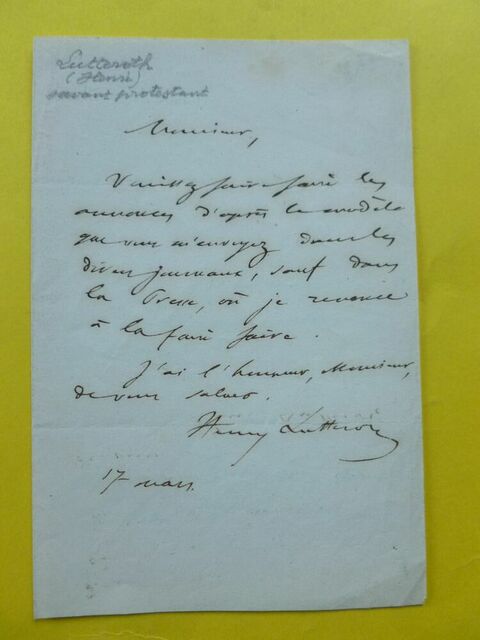 Lutteroth
(Henri)
savant protestant
Monsieur,
Veuillez faire faire les
annonces d'après le modèle
que vous m'envoyez dans les
divers journaux, sauf dans
la Presse, où je renonce
à la faire faire.
J'ai l'honneur, Monsieur,
de vous saluer.
Henry Lutteroth
17 mars.